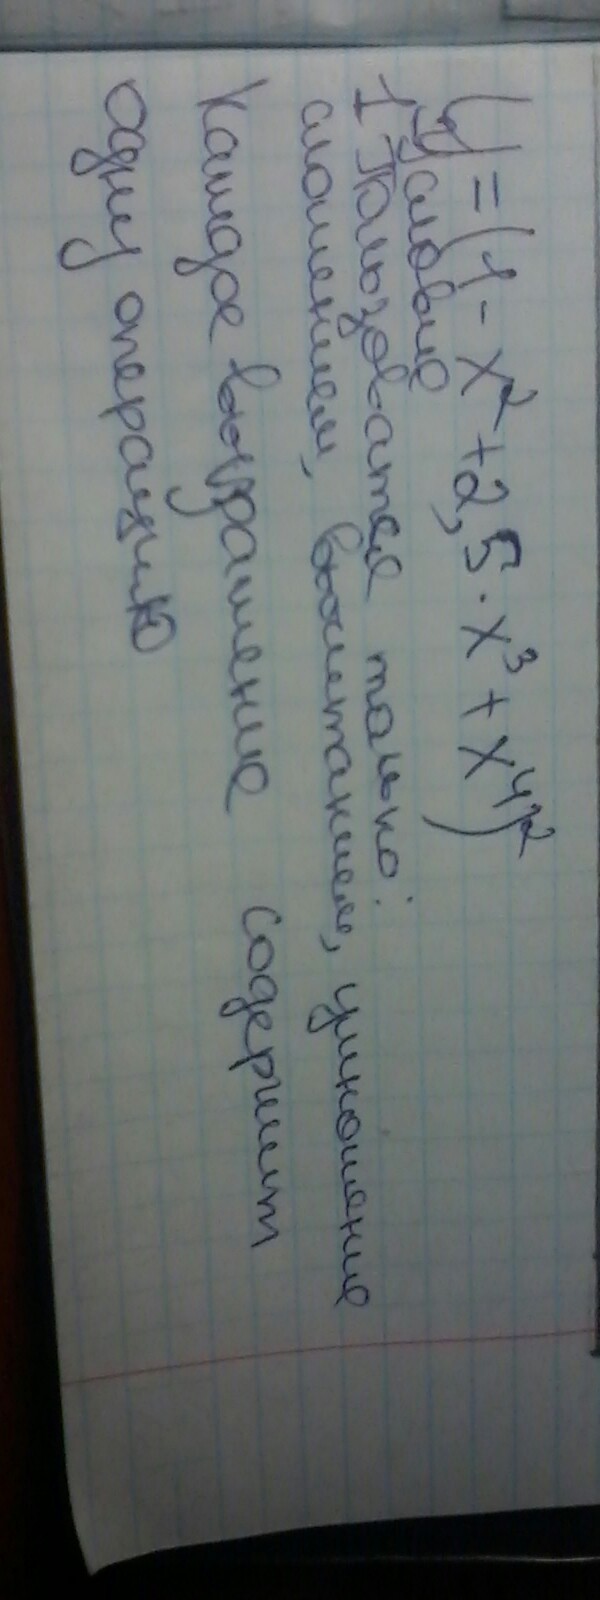 y = (1 - x² + 2,5 · x³ + x⁴)²
Условие
1 Пользоватся только:
сложением, вычитанием, умножение
Каждое выражение содержит
одну операцию